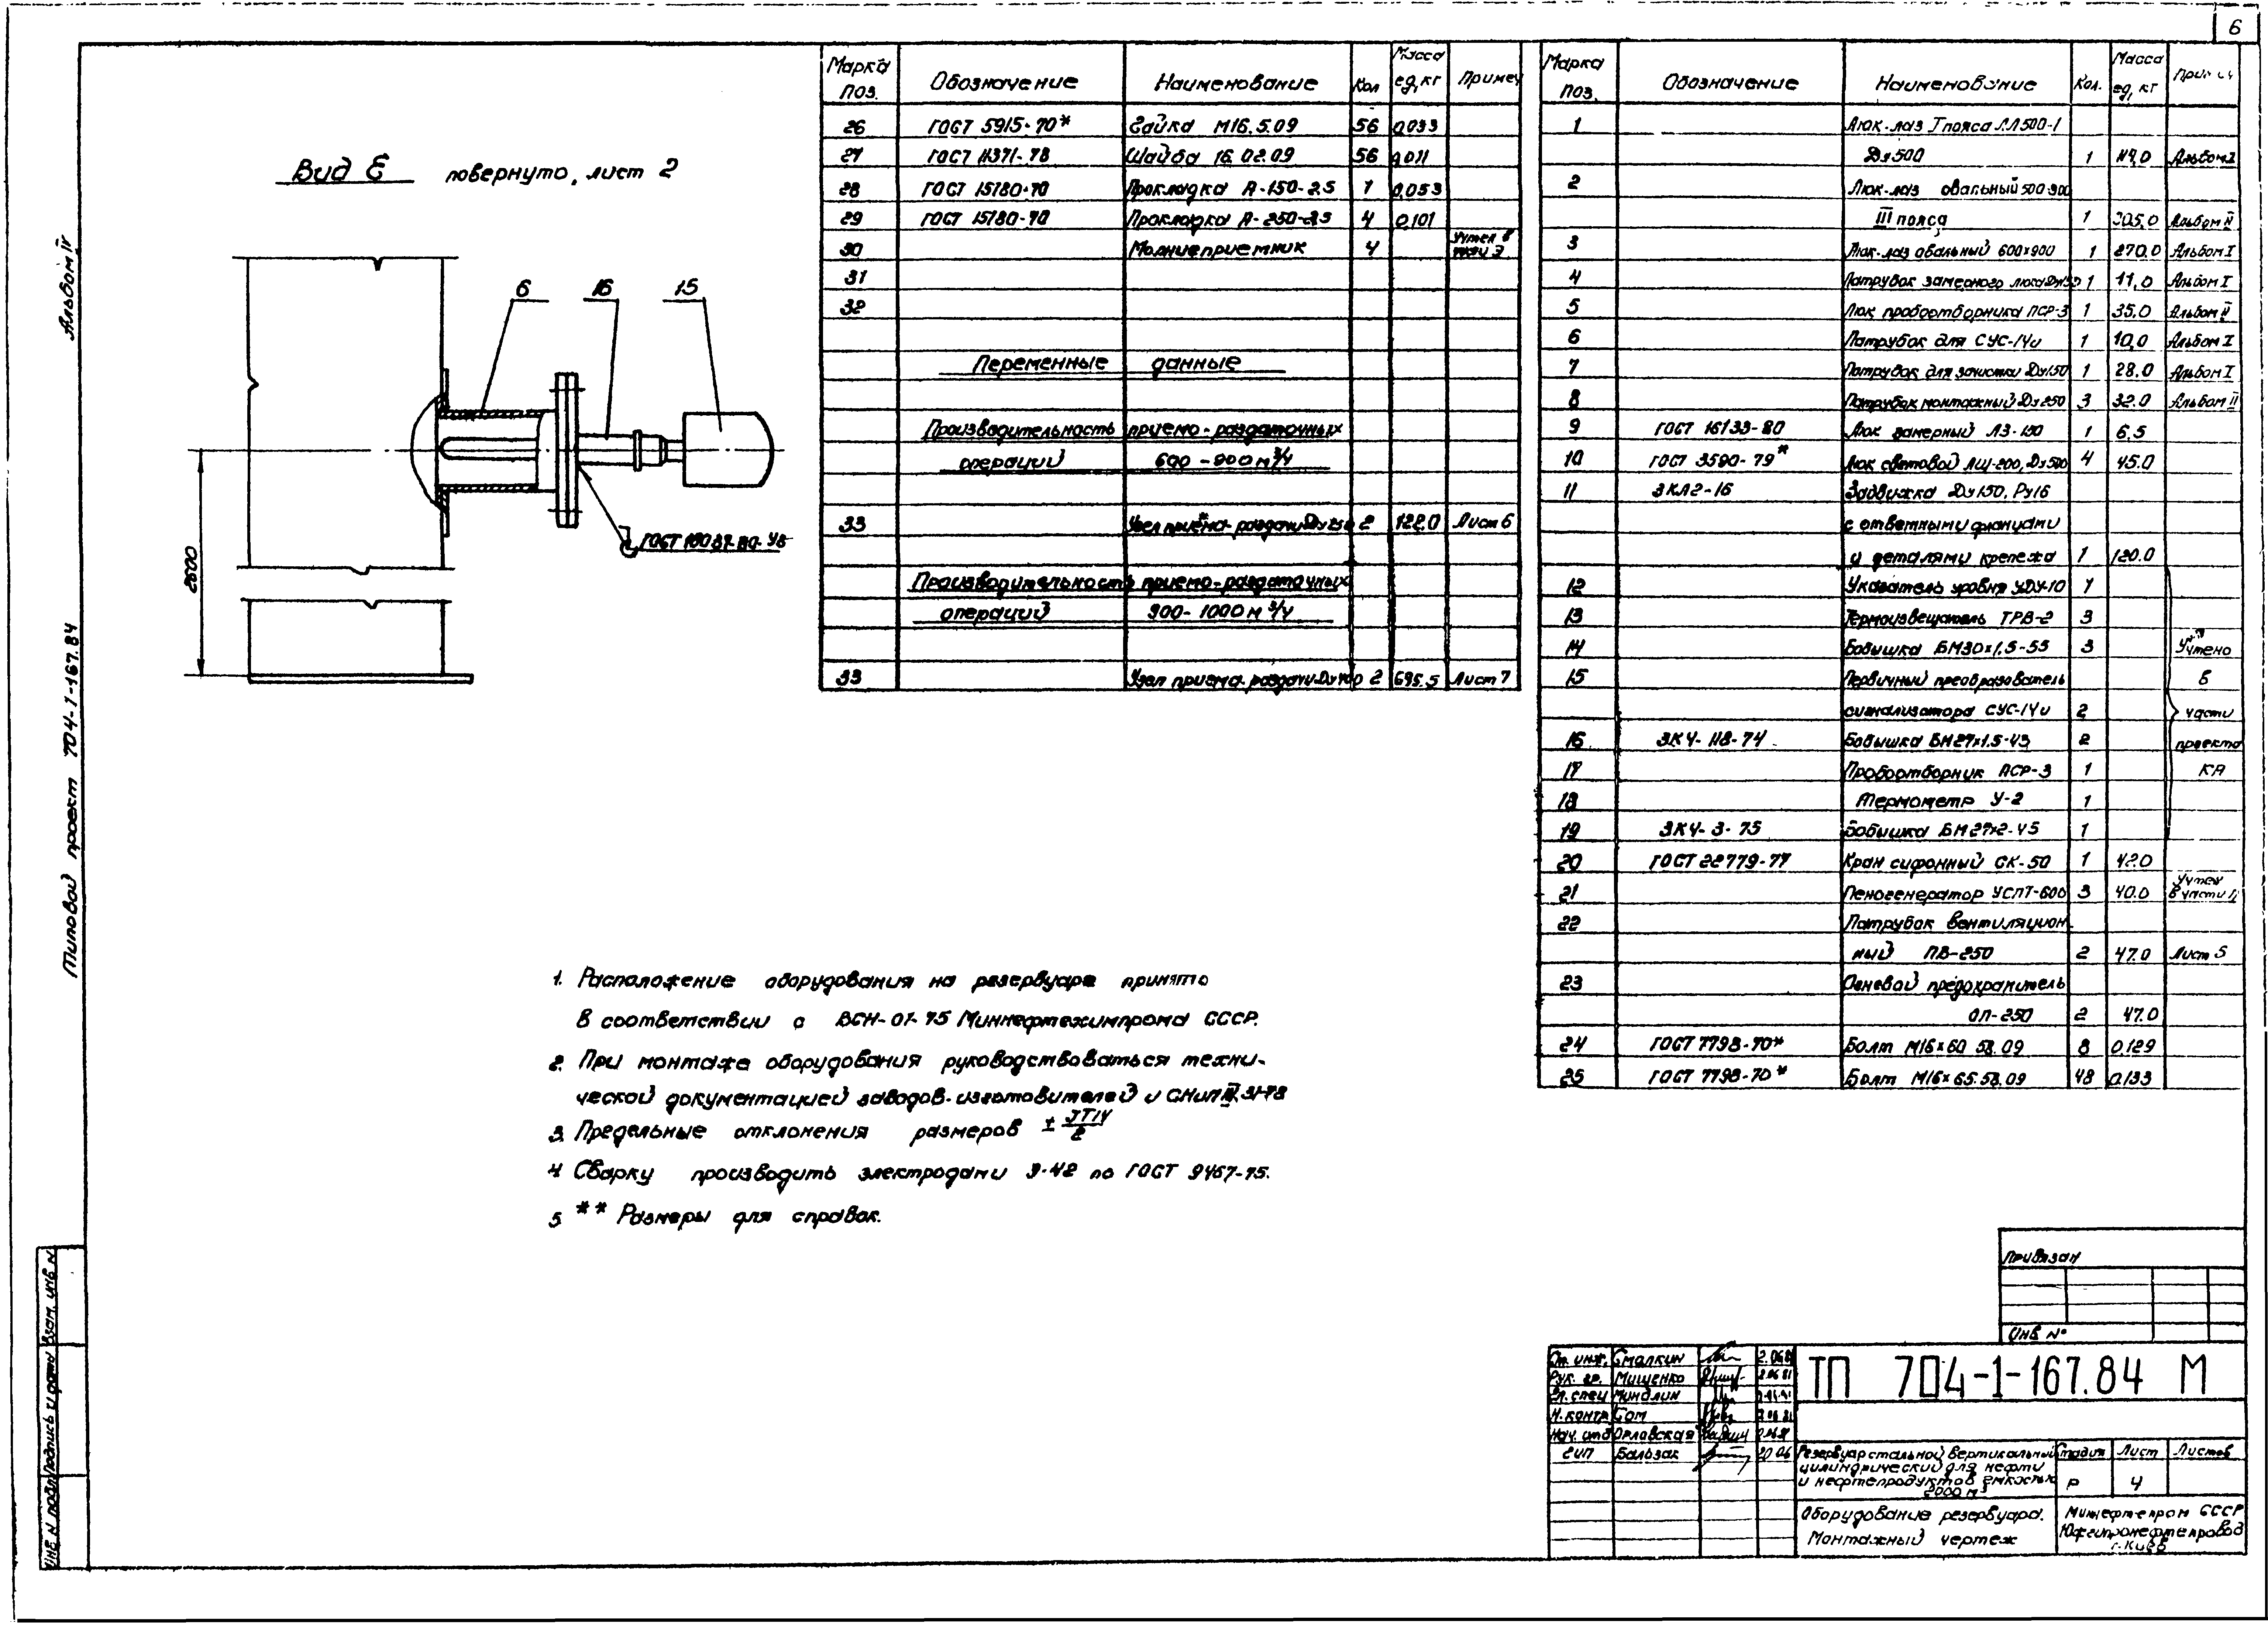 6
Альбом IV
Типовой проект 704-1-167.84
Вид Е повернуто, лист 2
6 16 15
ГОСТ 10037-80-У8
2600
Марка поз. Обозначение Наименование Кол Масса ед, кг Примеч
26 ГОСТ 5915-70* Гайка М16.5.09 56 0,033
27 ГОСТ 11371-78 Шайба 16.02.09 56 0,011
28 ГОСТ 15180-70 Прокладка А-150-25 1 0,053
29 ГОСТ 15180-70 Прокладка А-250-25 4 0,101
30 Молниеприемник 4 Учтен в части Э
31
32
Переменные данные
Производительность приемо-раздаточных
операций 600-900 м³/ч
33 Узел приема-раздачи Ду 250 2 122,0 Лист 6
Производительность приемо-раздаточных
операций 900-1000 м³/ч
33 Узел приема-раздачи Ду 400 2 695.5 Лист 7
Марка поз. Обозначение Наименование Кол. Масса ед, кг
1 Люк-лаз I пояса ЛЛ500-1
Ду500 1 114,0 Альбом I
2 Люк-лаз овальный 500-900
III пояса 1 305,0 Альбом II
3 Люк-лаз овальный 600х900 1 270,0 Альбом I
4 Патрубок замерного люка Ду150 1 11,0 Альбом I
5 Люк пробоотборника ПСР-3 1 35,0 Альбом II
6 Патрубок для СУС-14и 1 10,0 Альбом I
7 Патрубок для зачистки Ду150 1 28.0 Альбом I
8 Патрубок монтажный Ду 250 3 32.0 Альбом II
9 ГОСТ 16133-80 Люк замерный ЛЗ-150 1 6,5
10 ГОСТ 3590-79* Люк световой ЛЩ-200, Ду500 4 45.0
11 ЗКЛ2-16 Задвижка Ду150, Ру16
с ответными фланцами
и деталями крепежа 1 120.0
12 Указатель уровня УДУ-10 1
13 Термоизвещатель ТРВ-2 3
14 Бобышка БМ30х1,5-55 3 Учтено
15 Первичный преобразователь в
сигнализатора СУС-14и 2 части
16 ЗК4-118-74 Бобышка БМ27х1.5-43 2 проекта
17 Пробоотборник ПСР-3 1 КА
18 Термометр У-2 1
19 ЗК4-3-75 Бобышка БМ27х2-45 1
20 ГОСТ 22779-77 Кран сифонный СК-50 1 42.0
21 Пеногенератор УСПТ-600 3 40.0 Учтен в части
22 Патрубок вентиляцион
ный ПВ-250 2 47.0 Лист 5
23 Огневой предохранитель
ОП-250 2 47.0
24 ГОСТ 7798-70* Болт М16х60 58.09 8 0,129
25 ГОСТ 7798-70* Болт М16х65.58.09 48 0,133
1. Расположение оборудования на резервуаре принято
в соответствии с ВСН-01-75 Миннефтехимпрома СССР.
2. При монтаже оборудования руководствоваться техни-
ческой документацией заводов-изготовителей и СНиП III-31-78
3. Предельные отклонения размеров ± JT14/2
4 Сварку производить электродами Э-42 по ГОСТ 9467-75.
5. ** Размеры для справок.
Привязан
Инв №
Ст. инж. Смалкин 2.06.81
Рук. гр. Мищенко 2.06.81
Гл. спец Миндлин
Н. контр Сом 2.06.81
Нач. отд Орловская
ГИП Бальзак 20.06
ТП 704-1-167.84 М
Резервуар стальной вертикальный
цилиндрический для нефти
и нефтепродуктов емкостью
2000 м³
Стадия Лист Листов
Р 4
Оборудование резервуара.
Монтажный чертеж
Миннефтепром СССР
Южгипронефтепровод
г. Киев
Взам. инв N
Подпись и дата
Инв. N подл